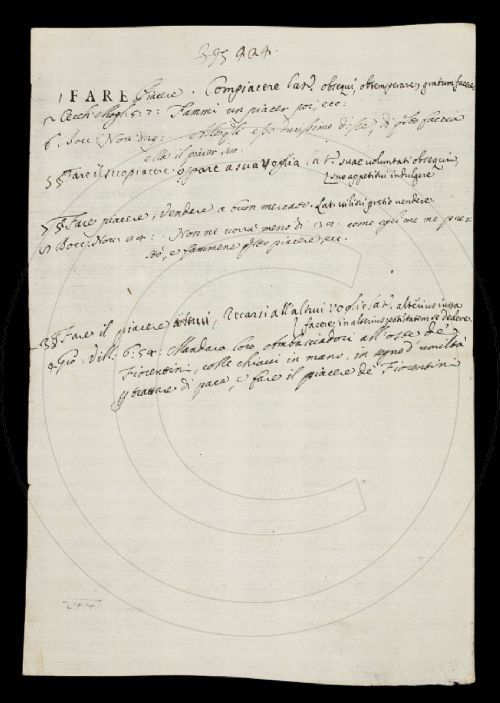 395 424.
1 FARE Piacere. Compiacere Lat. obsequi, obtemperare, gratum facere,
2 Cecch. Mogl. 5. 7: Fammi un piacer poi, ecc:
6. Bocc: Nov: allora esso turissimo disse, di faccia
ella il piacer
5 § Fare il suo piacere, oppare a sua voglia, Lat. suae voluntati obsequi,
suo appetitui indulgere
7 § Fare piacere, Vendere a buon mercato. Lat. viliori pretio vendere.
Bocc: Nov: 84: Non ne vorrà meno di 39. come egli me ne pre-
stò, e fammene questo piacere, ecc.
3 § Fare il piacere altrui, Recarsi all'altrui voglie, Lat. alterius iussa
facere, in alterius potestatem se dedere.
4 Gio: Vill: 6: 54: Mandaro loro Ambasciadori all'oste de'
Fiorentini, colle chiavi in mano, in segno d'umiltà
trattare di pace, e fare il piacere de' Fiorentini